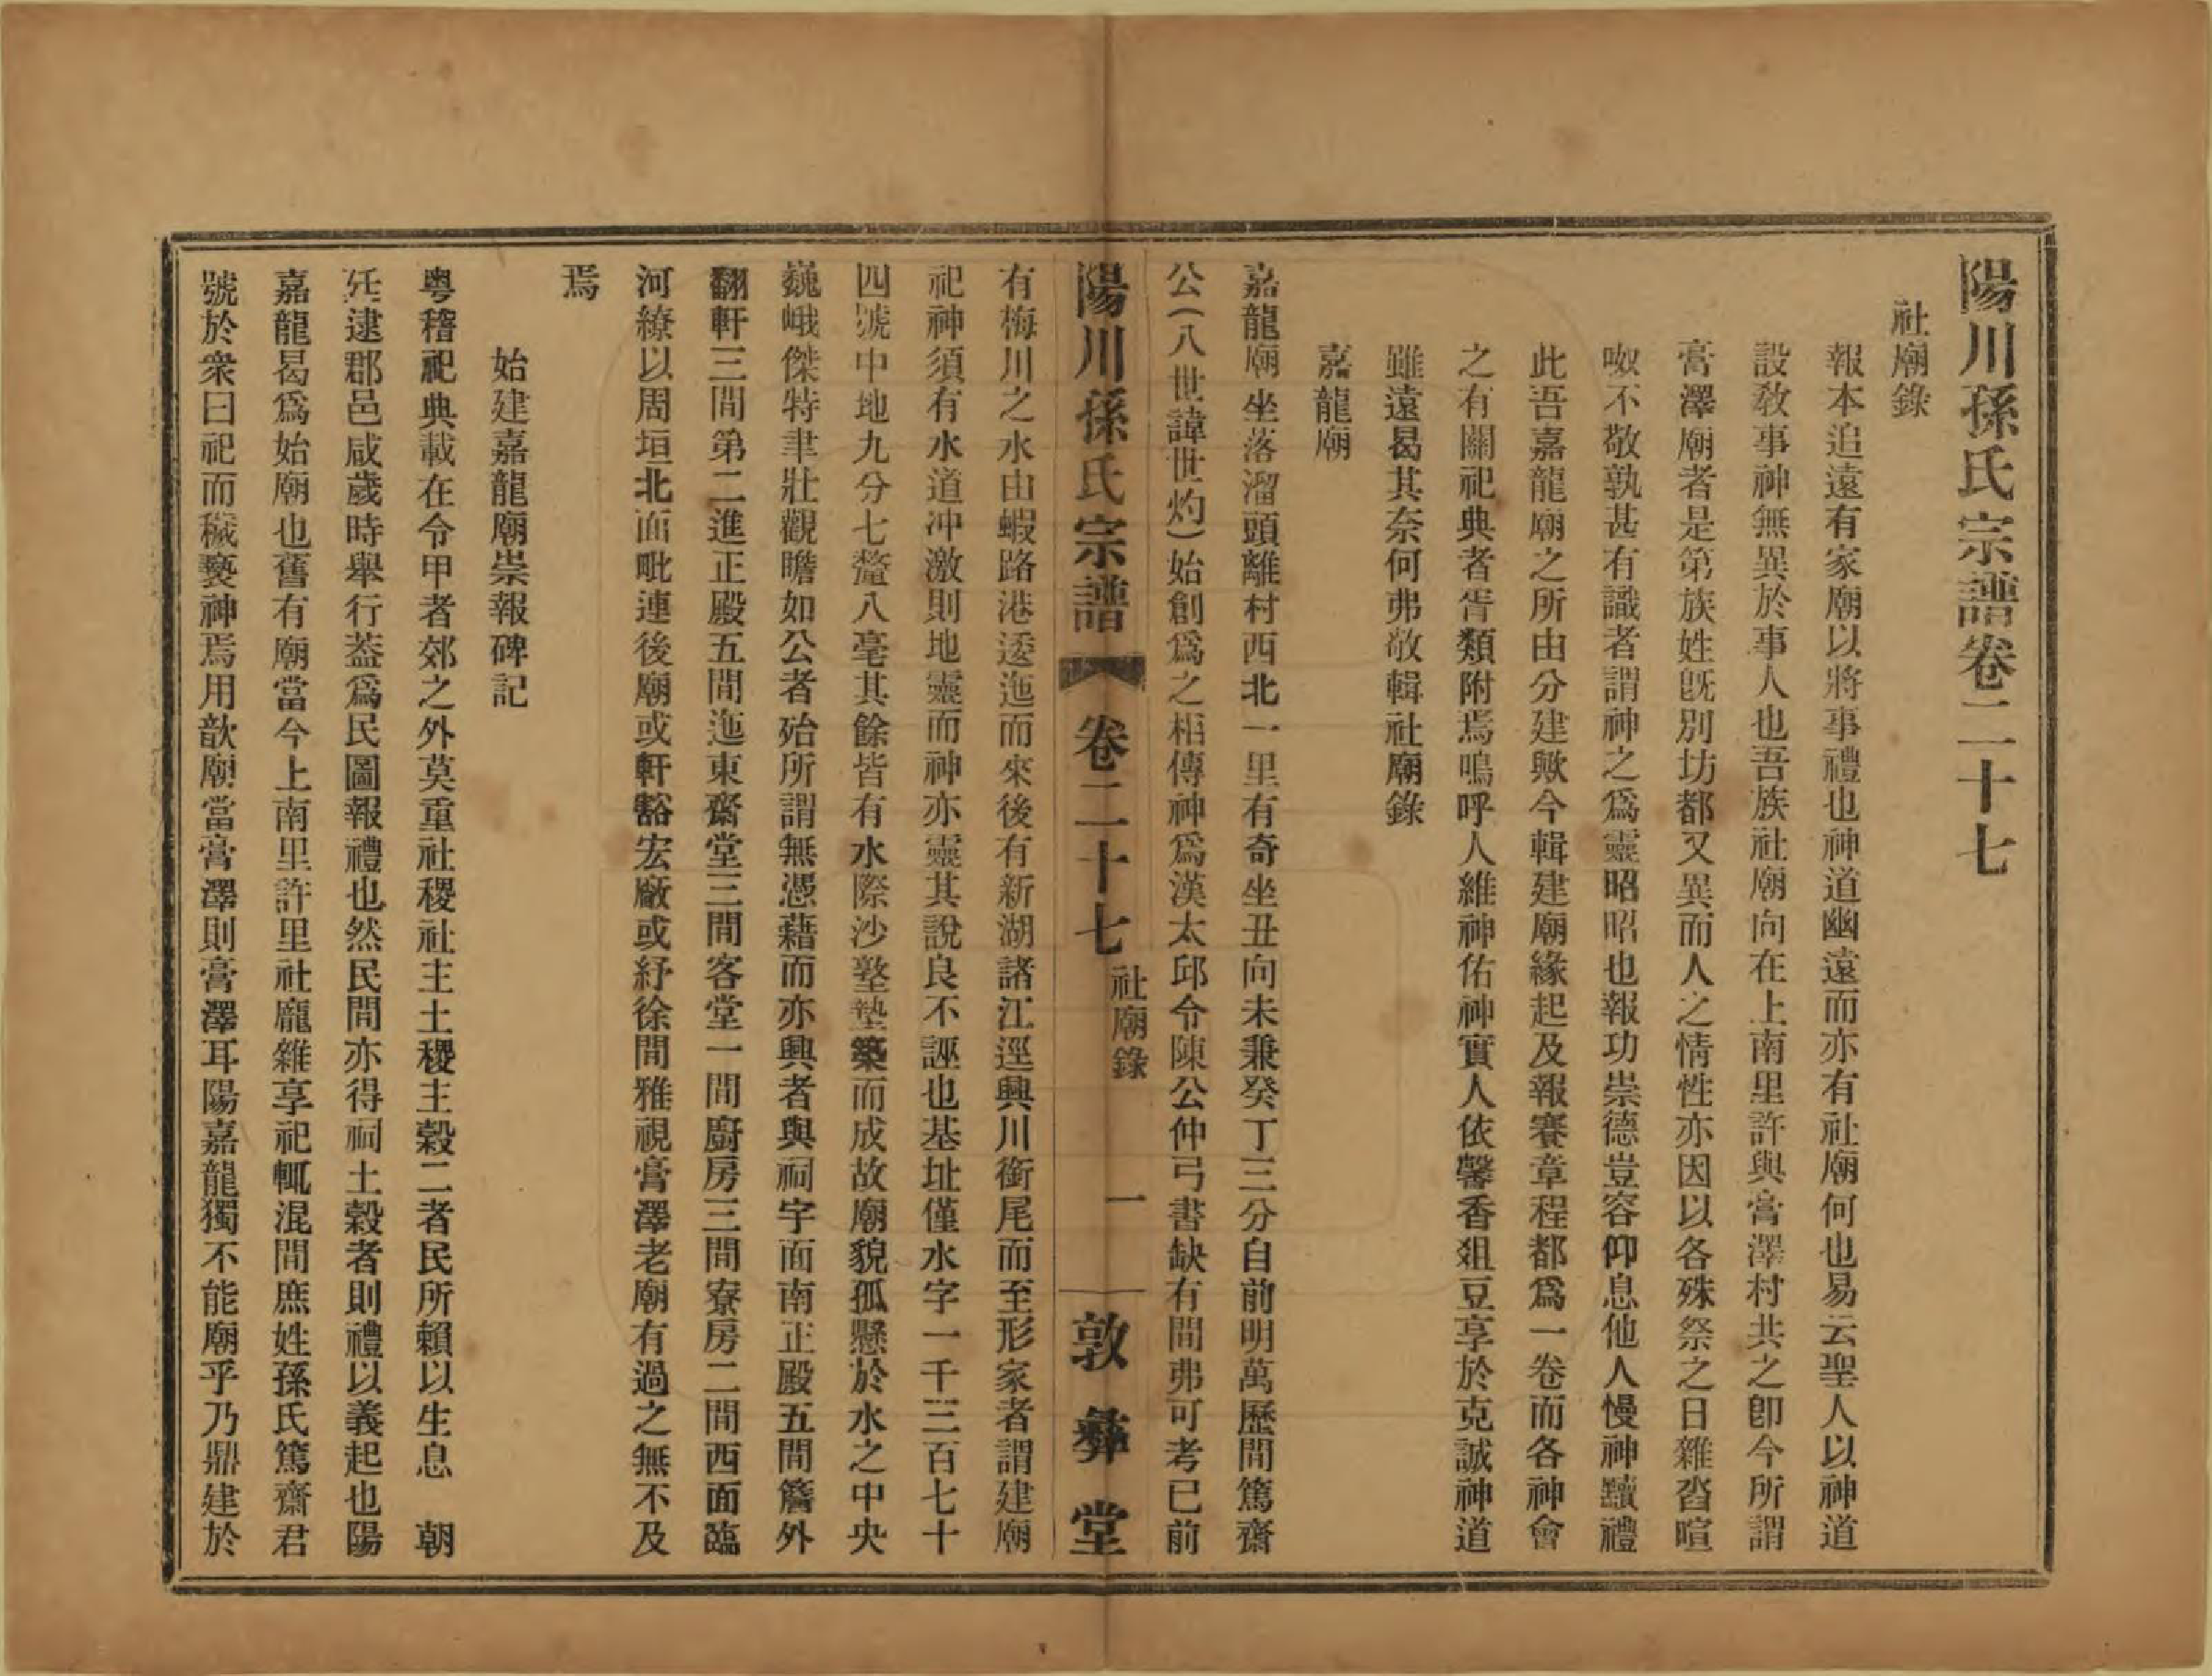 陽川孫氏宗譜卷二十七
社廟錄
報本追遠有家廟以將事禮也神道幽遠而亦有社廟何也易云聖人以神道
設教事神無異於事人也吾族社廟向在上南里許與膏澤村共之卽今所謂
膏澤廟者是第族姓旣別坊都又異而人之情性亦因以各殊祭之日雜沓喧
呶不敬孰甚有識者謂神之爲靈昭昭也報功崇德豈容仰息他人慢神黷禮
此吾嘉龍廟之所由分建歟今輯建廟緣起及報賽章程都爲一卷而各神會
之有關祀典者胥類附焉嗚呼人維神佑神實人依馨香俎豆享於克誠神道
雖遠曷其奈何弗敬輯社廟錄
嘉龍廟
嘉龍廟坐落溜頭離村西北一里有奇坐丑向未兼癸丁三分自前明萬歷間篤齋
公(八世諱世灼)始創爲之相傳神爲漢太邱令陳公仲弓書缺有間弗可考已前
陽川孫氏宗譜 卷二十七 社廟錄 一 敦彝堂
有梅川之水由蝦路港逶迤而來後有新湖諸江逕興川銜尾而至形家者謂建廟
祀神須有水道冲激則地靈而神亦靈其說良不誣也基址僅水字一千三百七十
四號中地九分七釐八毫其餘皆有水際沙墪墊築而成故廟貌孤懸於水之中央
巍峨傑特聿壯觀瞻如公者殆所謂無憑藉而亦興者與祠宇面南正殿五間簷外
翻軒三間第二進正殿五間迤東齋堂三間客堂一間廚房三間寮房二間西面臨
河繚以周垣北面毗連後廟或軒豁宏廠或紓徐閒雅視膏澤老廟有過之無不及
焉
始建嘉龍廟崇報碑記
粵稽祀典載在令甲者郊之外莫重社稷社主土稷主穀二者民所賴以生息 朝
廷逮郡邑咸歲時舉行葢爲民圖報禮也然民間亦得祠土穀者則禮以義起也陽
嘉龍曷爲始廟也舊有廟當今上南里許里社龐雜享祀輒混間庶姓孫氏篤齋君
號於衆曰祀而穢褻神焉用歆廟當膏澤則膏澤耳陽嘉龍獨不能廟乎乃鼎建於